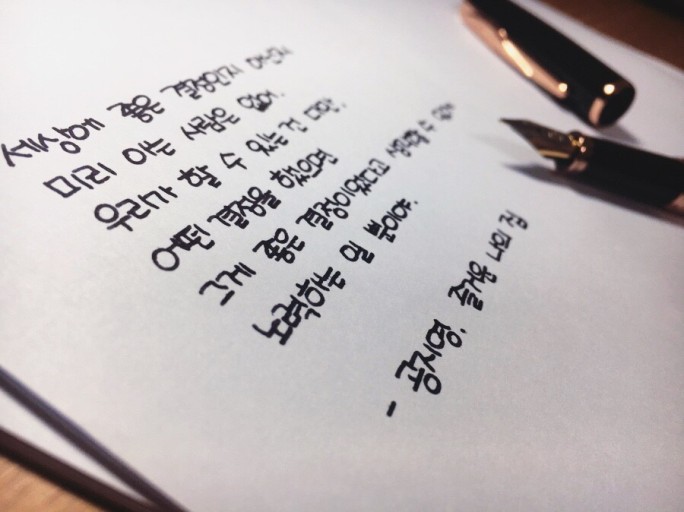 세상에 좋은 결정인지 아닌지
미리 아는 사람은 없어.
우리가 할 수 있는 건 다만,
어떤 결정을 했으면
그게 좋은 결정이었다고 생각할 수 있게
노력하는 일 뿐이야.
- 공지영. 즐거운 나의 집